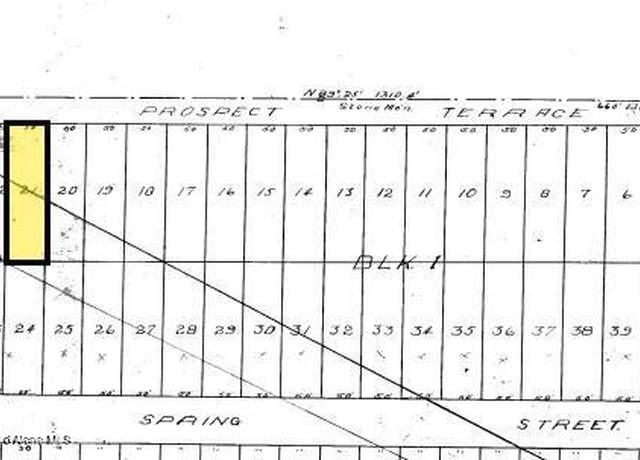 N 89° 25' 1310.4'
Stone Mon.
PROSPECT TERRACE
21 20 19 18 17 16 15 14 13 12 11 10 9 8 7 6
BLK 1
24 25 26 27 28 29 30 31 32 33 34 35 36 37 38 39
SPRING STREET